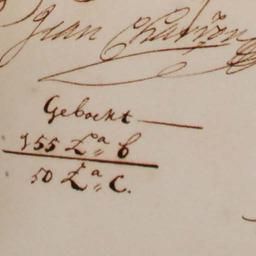 Jean
Geboekt
155 L.ª b
50 L.ª C.